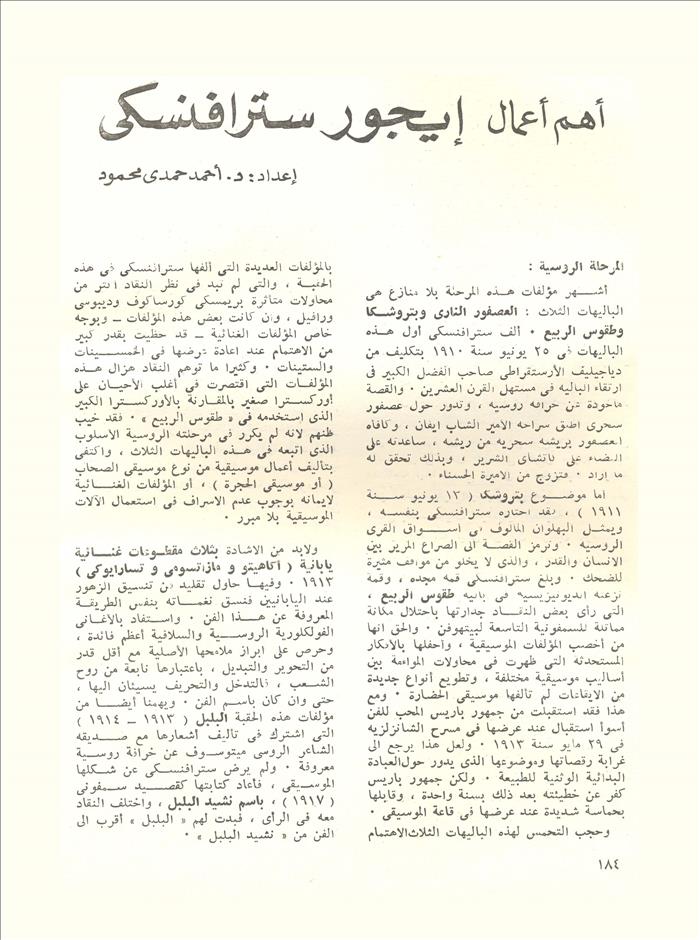 أهم أعمال إيجور سترافنسكى
إعداد: د. أحمد حمدى محمود
المرحلة الروسية :
أشهر مؤلفات هذه المرحلة بلا منازع هى
الباليهات الثلاث : العصفور النارى وبتروشكا
وطقوس الربيع ٠ ألف سترافنسكى أول هذه
الباليهات فى ٢٥ يونيو سنة ١٩١٠ بتكليف من
دياجيليف الأرستقراطى صاحب الفضل الكبير فى
ارتقاء الباليه فى مستهل القرن العشرين ٠ والقصة
ماخوذة عن خرافة روسيه ، وتدور حول عصفور
سحرى اطلق سراحه الامير الشاب ايفان ، وكافاه
العصفور بريشه سحريه من ريشه ، ساعدته على
القضاء على كاتشاى الشرير ، وبذلك تحقق له
ما اراد ٠ فتزوج من الاميرة الحسناء ٠
اما موضوع بتروشكا ( ١٣ يونيو سنة
١٩١١ ) ، فقد اختاره سترافنسكى بنفسه ،
ويمثل البهلوان المالوف فى اسواق القرى
الروسيه ٠ وترمز القصة الى الصراع المرير بين
الانسان والقدر ، والذى لا يخلو من مواقف مثيرة
للضحك ٠ وبلغ سترافنسكى قمة مجده ، وقمة
نزعته الديونيزيسيه فى باليه طقوس الربيع ،
التى رأى بعض النقاد جدارتها باحتلال مكانة
مماثلة للسمفونية التاسعة لبيتهوفن ٠ والحق انها
من أخصب المؤلفات الموسيقية ، وأحفلها بالافكار
المستحدثه التى ظهرت فى محاولات المواءمة بين
أساليب موسيقية مختلفة ، وتطويع أنواع جديدة
من الايقاعات لم تألفها موسيقى الحضارة ٠ ومع
هذا فقد استقبلت من جمهور باريس المحب للفن
أسوأ استقبال عند عرضها فى مسرح الشانزلزيه
فى ٢٩ مايو سنة ١٩١٣ ٠ ولعل هذا يرجع الى
غرابة رقصاتها وموضوعها الذى يدور حول العبادة
البدائية الوثنية للطبيعة ٠ ولكن جمهور باريس
كفر عن خطيئته بعد ذلك بسنة واحدة ، وقابلها
بحماسة شديدة عند عرضها فى قاعة الموسيقى ٠
وحجب التحمس لهذه الباليهات الثلاث الاهتمام
بالمؤلفات العديدة التى ألفها سترافنسكى فى هذه
الحقبة ، والتى لم تبد فى نظر النقاد أكثر من
محاولات متأثرة بريمسكى كورساكوف وديبوسى
ورافيل ، وان كانت بعض هذه المؤلفات ــ وبوجه
خاص المؤلفات الغنائية ــ قد حظيت بقدر كبير
من الاهتمام عند اعادة عرضها فى الخمسينات
والستينات ٠ وكثيرا ما توهم النقاد هزال هذه
المؤلفات التى اقتصرت فى أغلب الأحيان على
أوركسترا صغير بالمقارنة بالأوركسترا الكبير
الذى استخدمه فى « طقوس الربيع » ٠ فقد خيب
ظنهم لانه لم يكرر فى مرحلته الروسية الاسلوب
الذى اتبعه فى هذه الباليهات الثلاث ، واكتفى
بتأليف أعمال موسيقية من نوع موسيقى الصحاب
( أو موسيقى الحجرة ) ، أو المؤلفات الغنائية
لايمانه بوجوب عدم الاسراف فى استعمال الآلات
الموسيقية بلا مبرر ٠
ولابد من الاشادة بثلاث مقطوعات غنائية
يابانية ( أكاهيتو و مازاتسومى و تسارايوكى )
١٩١٣ ٠ وفيها حاول تقليد فن تنسيق الزهور
عند اليابانيين فنسق نغماته بنفس الطريقة
المعروفة عن هذا الفن ٠ واستفاد بالأغانى
الفولكلورية الروسية والسلافية أعظم فائدة ،
وحرص على ابراز ملامحها الأصلية مع أقل قدر
من التحوير والتبديل ، باعتبارها نابعة من روح
الشعب ، فالتدخل والتحريف يسيئان اليها ،
حتى وان كان باسم الفن ٠ ويهمنا أيضا من
مؤلفات هذه الحقبة البلبل ( ١٩١٣ ــ ١٩١٤ )
التى اشترك فى تأليف أشعارها مع صديقه
الشاعر الروسى ميتوسوف عن خرافة روسية
معروفة ٠ ولم يرض سترافنسكى عن شكلها
الموسيقى ، فأعاد كتابتها كقصيد سمفونى
( ١٩١٧ ) ، باسم نشيد البلبل ، واختلف النقاد
معه فى الرأى ، فبدت لهم « البلبل » أقرب الى
الفن من « نشيد البلبل » ٠
١٨٤